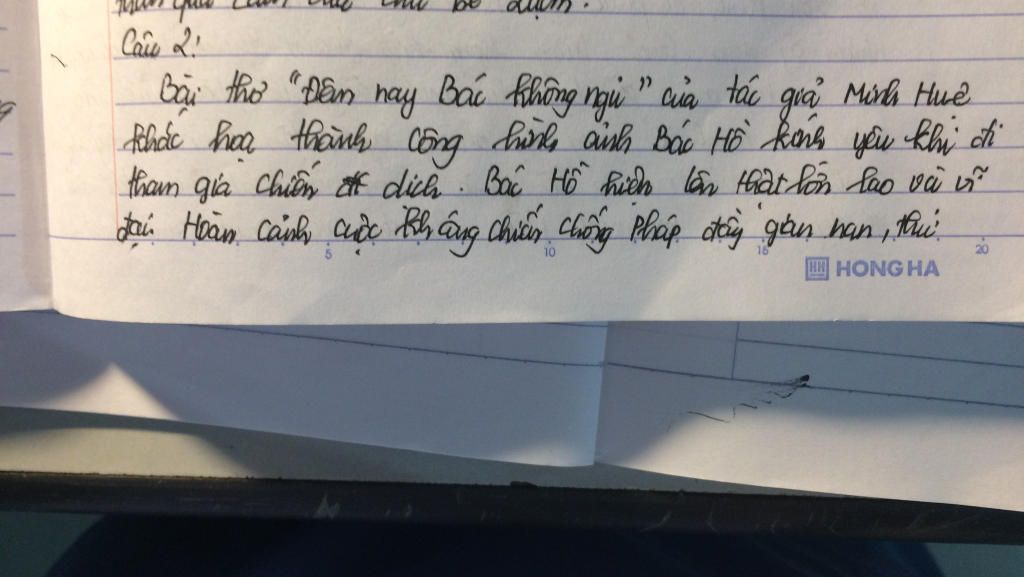 Câu 2:
Bài thơ "Đêm nay Bác không ngủ" của tác giả Minh Huệ
khắc họa thành công hình ảnh Bác Hồ kính yêu khi đi
tham gia chiến dịch. Bác Hồ hiện lên thật lớn lao và vĩ
đại. Hoàn cảnh cuộc kháng chiến chống Pháp đầy gian nan, thiếu
5 10 15 20
HONG HA